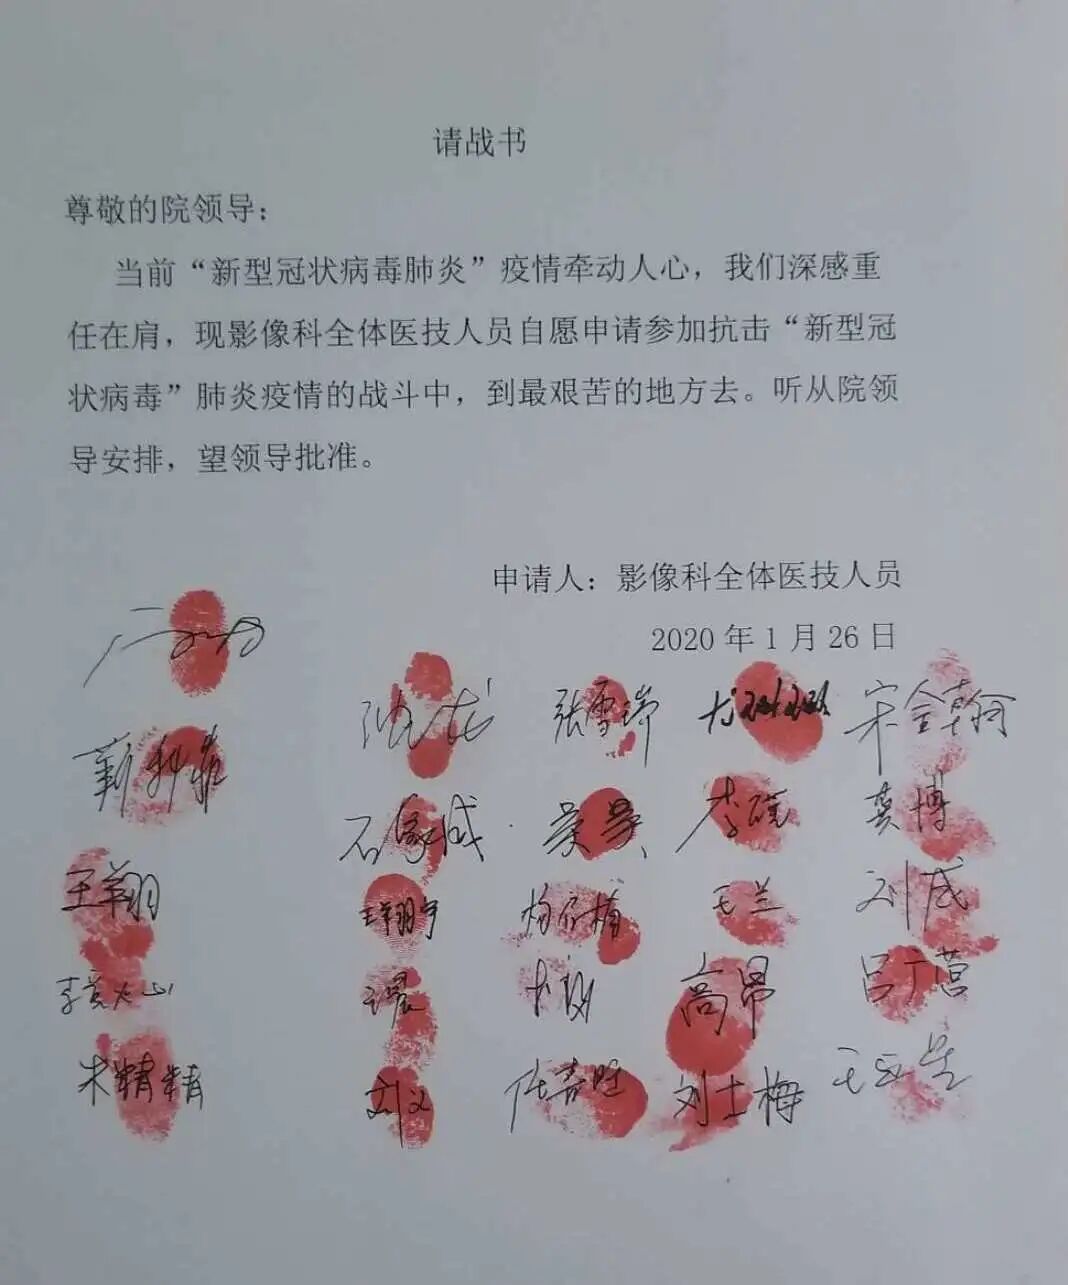 请战书
尊敬的院领导：
当前“新型冠状病毒肺炎”疫情牵动人心，我们深感重
任在肩，现影像科全体医技人员自愿申请参加抗击“新型冠
状病毒”肺炎疫情的战斗中，到最艰苦的地方去。听从院领
导安排，望领导批准。
申请人：影像科全体医技人员
2020年1月26日
张雪瑞
宋金翰
靳科菲
石家成
吴昊
李硕
龚博
王翔
王翔宇
王兰
刘威
高昂
吕广营
朱精精
刘义
任春旺
刘士梅